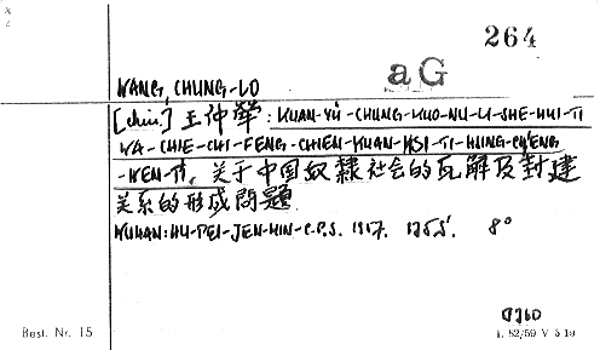 264
aG
WANG, CHUNG-LO
[chin.] 王仲犖: KUAN-YÜ-CHUNG-KUO-NU-LI-SHE-HUI-TI
WA-CHIE-CHI-FENG-CHIEN-KUAN-HSI-TI-HSING-CH'ENG
-WEN-T'I, 关于中国奴隸社会的瓦解及封建
关系的形成問題.
WUHAN: HU-PEI-JEN-MIN-C.P.S. 1957. 8°
Best. Nr. 15